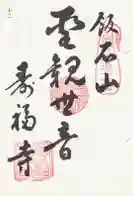 飯石山
聖観世音
寿福寺